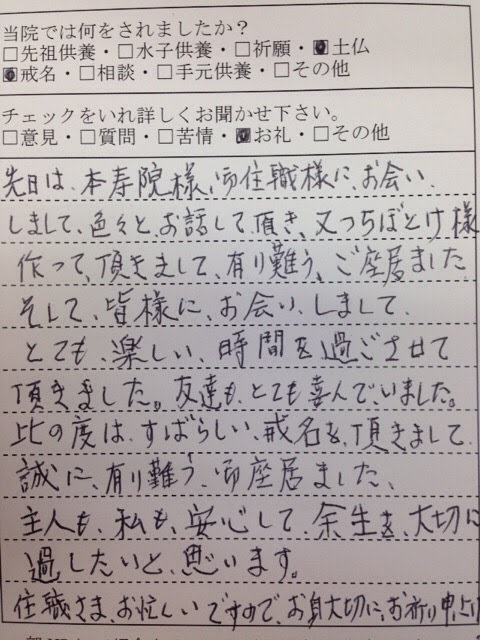 当院では何をされましたか？
□先祖供養・□水子供養・□祈願・■土仏
■戒名・□相談・□手元供養・□その他
チェックをいれ詳しくお聞かせ下さい。
□意見・□質問・□苦情・■お礼・□その他
先日は、本寿院様、御住職様に、お会い、
しまして、色々と、お話して、頂き、又つちぼとけ様
作って、頂きまして、有り難う、ご座居ました
そして、皆様に、お会い、しまして、
とても、楽しい、時間を過ごさせて
頂きました。友達も、とても喜んで、いました。
比の度は、すばらしい、戒名を、頂きまして、
誠に、有り難う、御座居ました、
主人も、私も、安心して、余生を、大切に
過したいと、思います。
住職さま、お忙しいですので、お身大切に、お祈り申し上げ